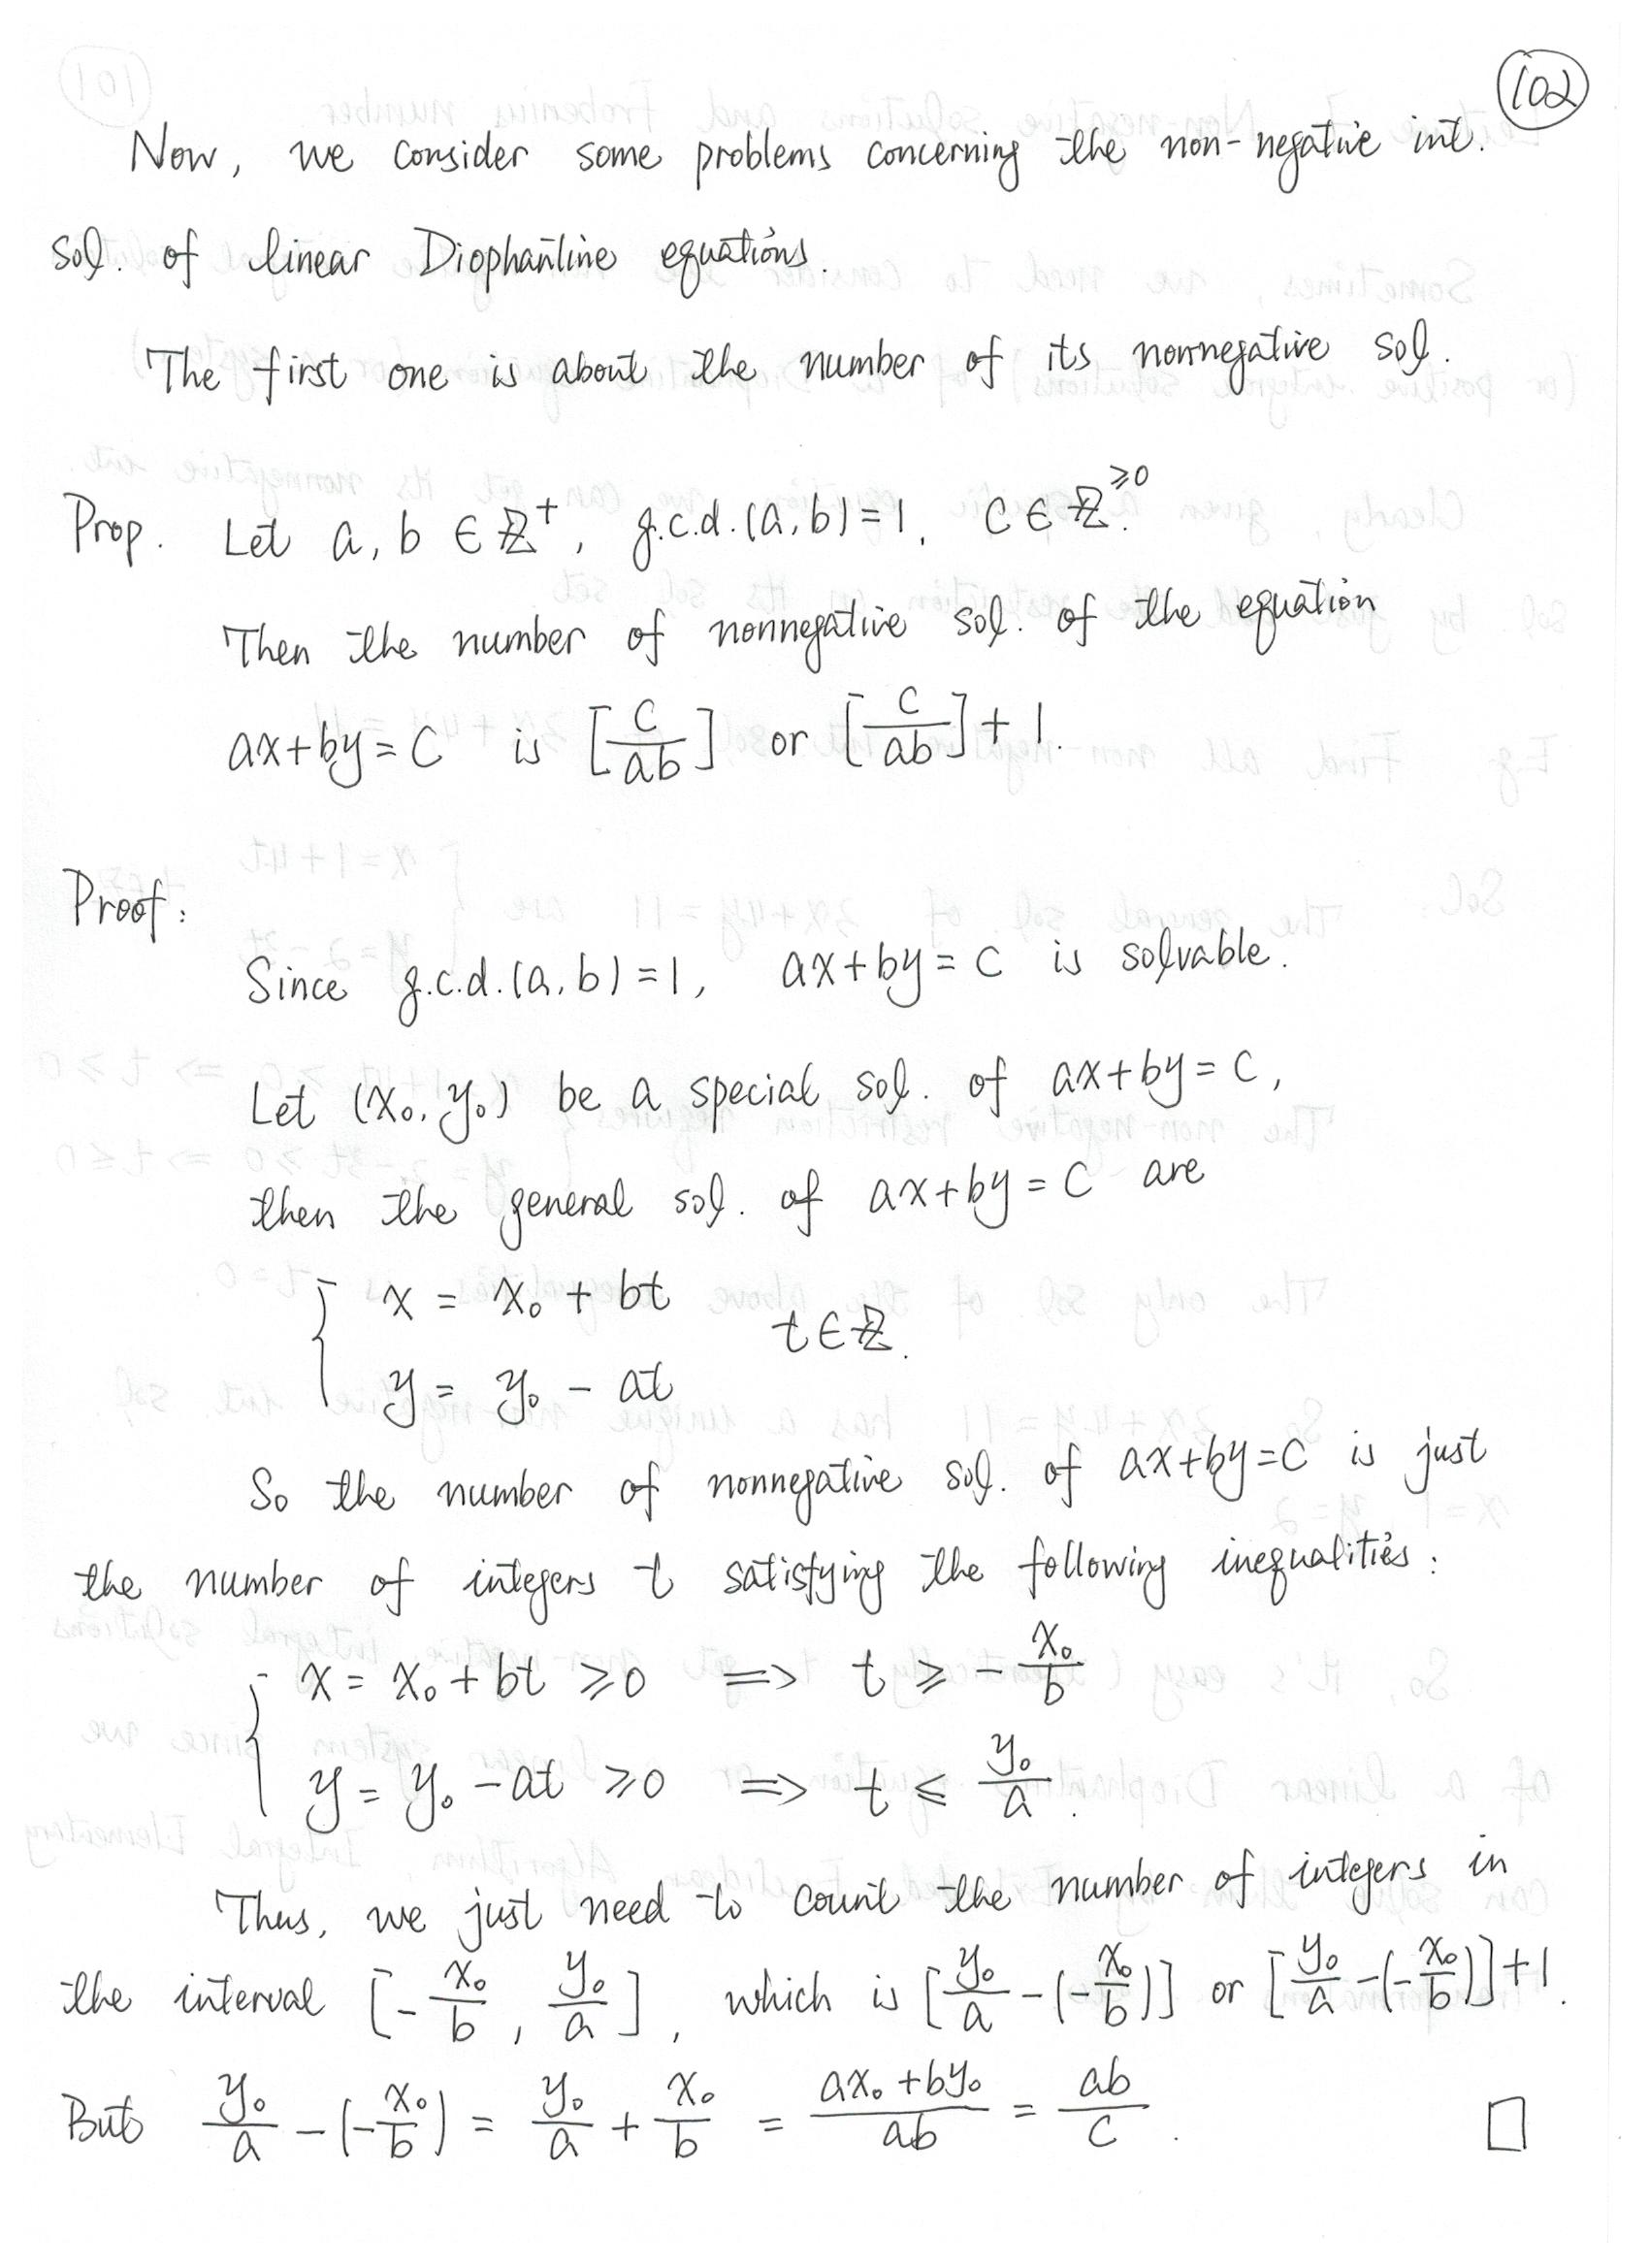 102
Now, we consider some problems concerning the non-negative int.
sol. of linear Diophantine equations.
The first one is about the number of its nonnegative sol.
Prop. Let a, b ∈ ℤ⁺, g.c.d.(a, b)=1, C ∈ ℤ^{≥0}.
Then the number of nonnegative sol. of the equation
ax+by=C is [C/ab] or [C/ab]+1.
Proof:
Since g.c.d.(a, b)=1, ax+by=C is solvable.
Let (x₀, y₀) be a special sol. of ax+by=C,
then the general sol. of ax+by=C are
{ x = x₀ + bt
y = y₀ - at t∈ℤ.
So the number of nonnegative sol. of ax+by=C is just
the number of integers t satisfying the following inequalities:
{ x = x₀ + bt ≥ 0 ⟹ t ≥ -x₀/b
y = y₀ - at ≥ 0 ⟹ t ≤ y₀/a.
Thus, we just need to count the number of integers in
the interval [-x₀/b, y₀/a], which is [y₀/a-(-x₀/b)] or [y₀/a-(-x₀/b)]+1.
But y₀/a-(-x₀/b) = y₀/a + x₀/b = (ax₀+by₀)/ab = ab/C. □